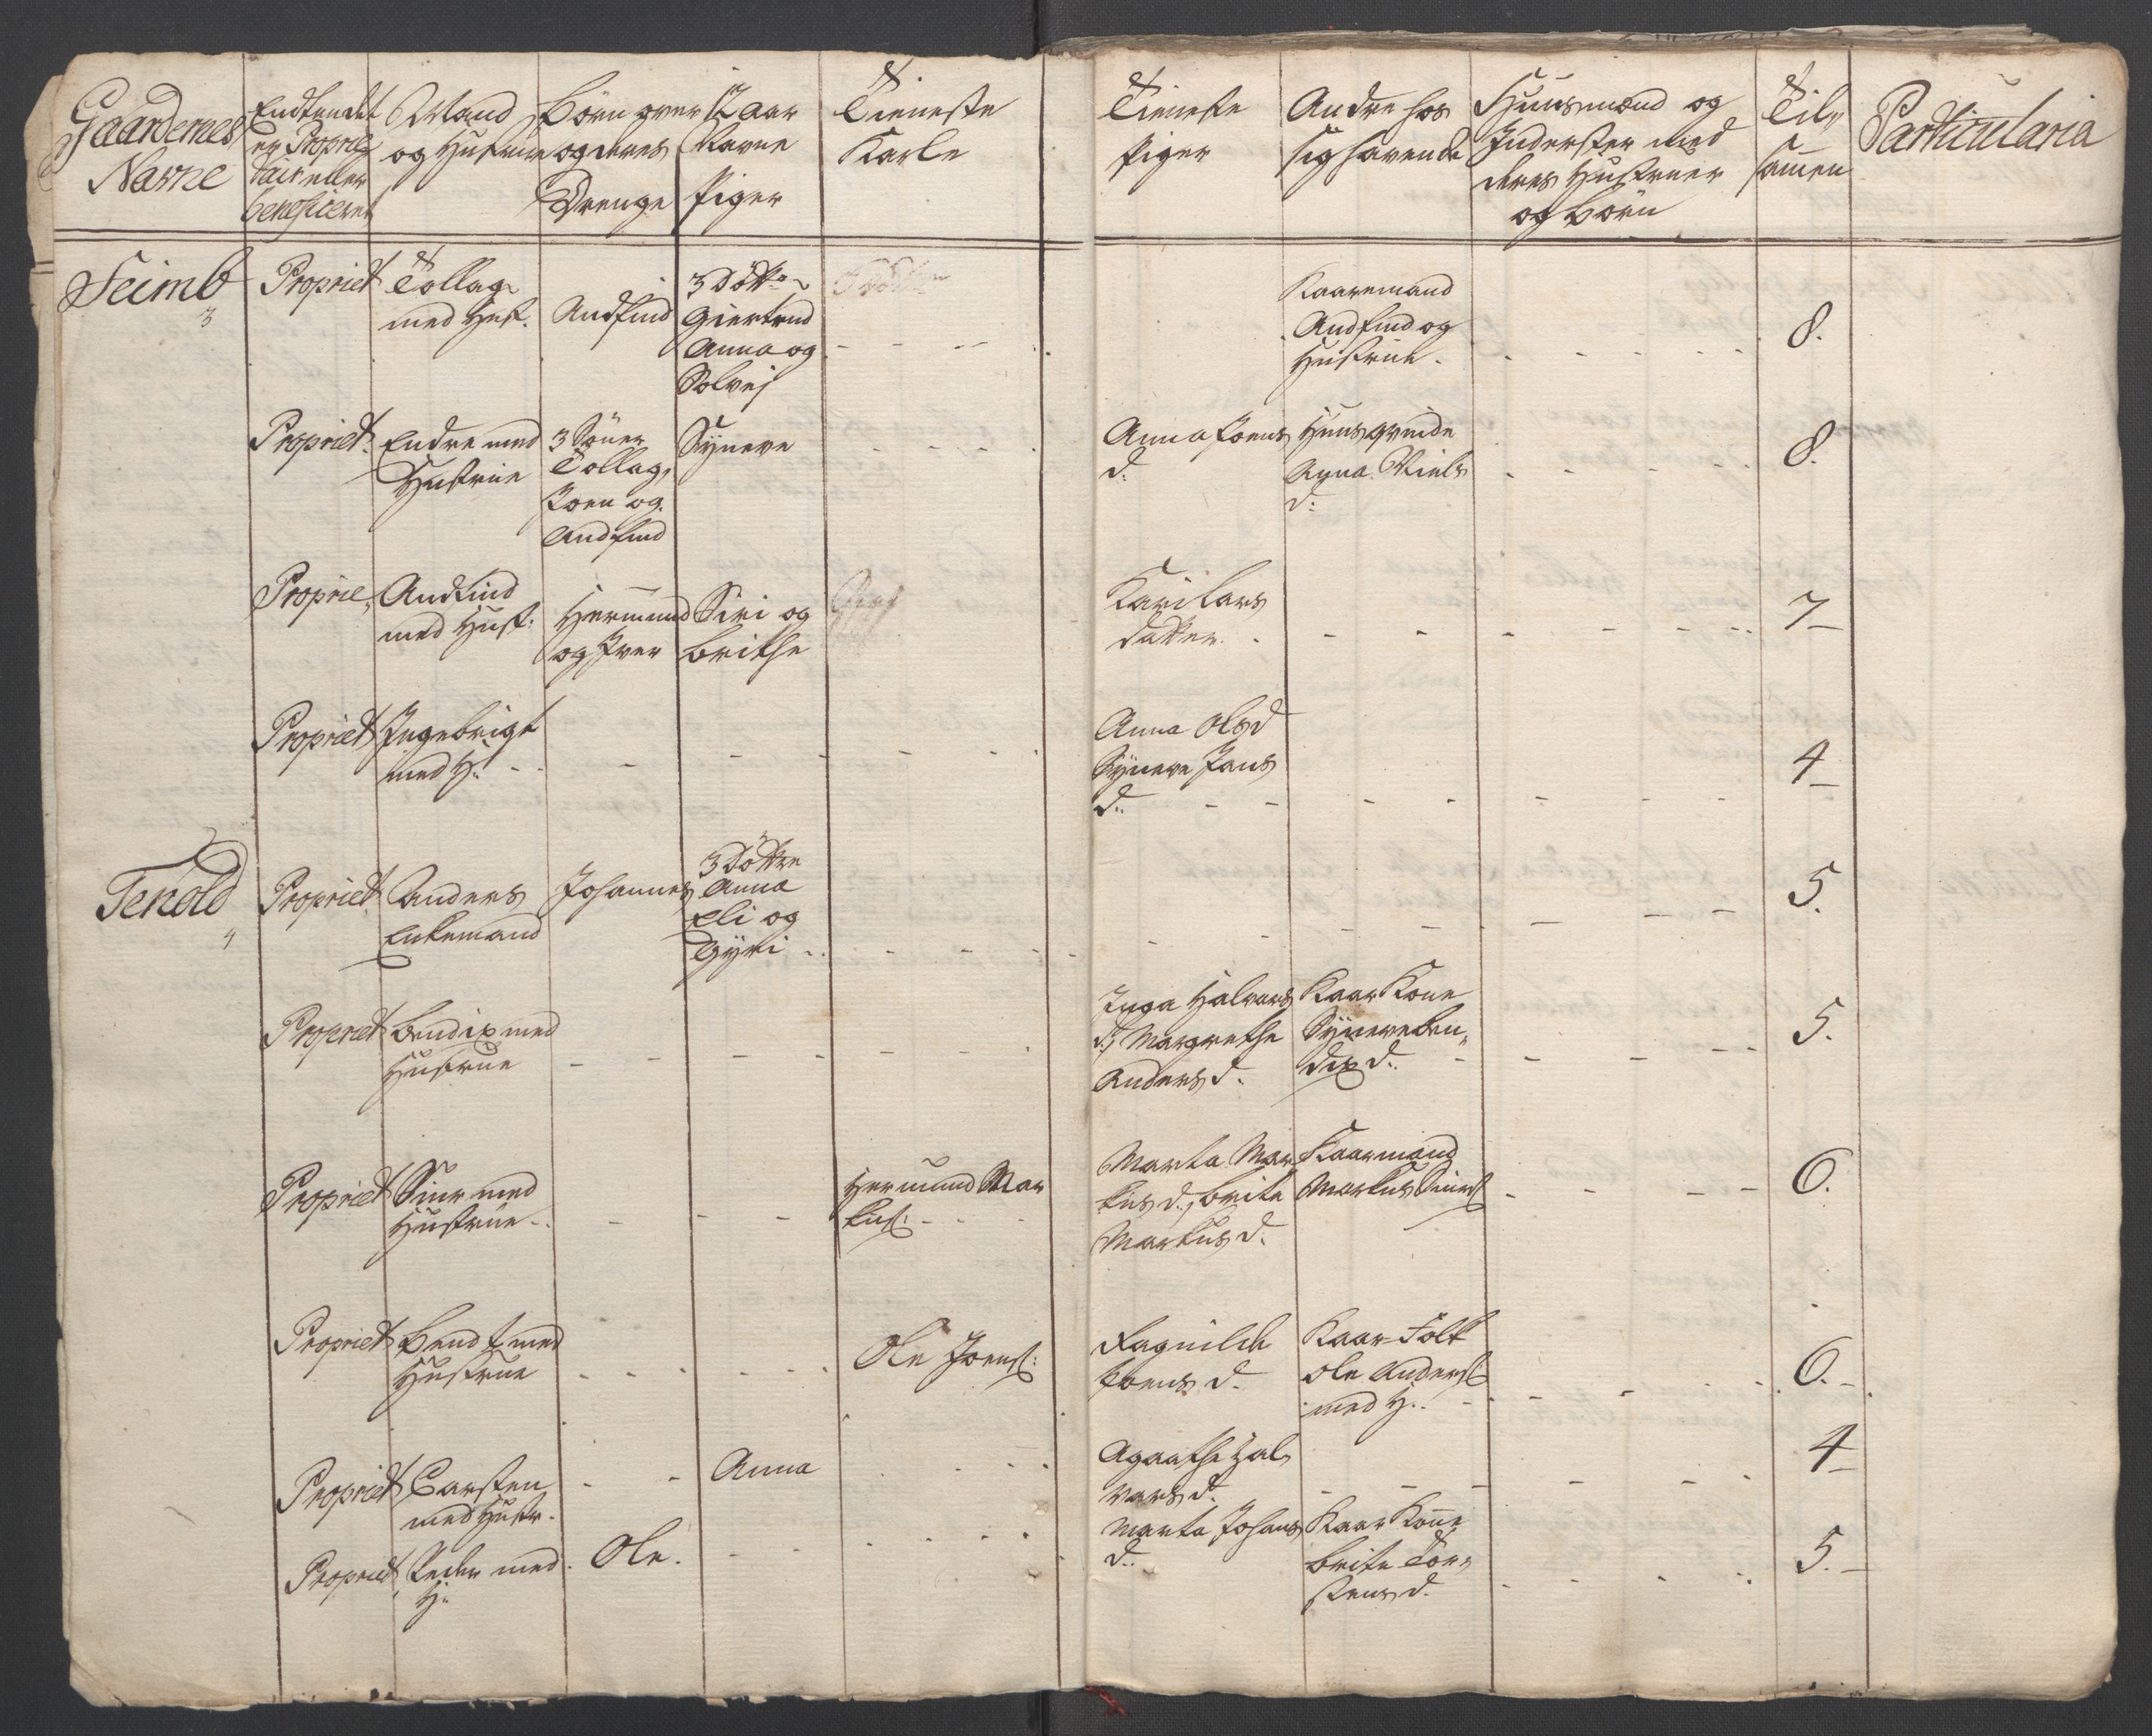 Gaardernes
Navne
Endten det
er Proprie-
tair eller
beneficeret
Mand
og Hustrue
Börn over 12 Aar
og deres Navne
Drenge Piger
Tieneste
Karle
Tieneste
Piger
Andre hos
sig havende
Huusmænd og
Inderster med
deres Hustruer
og Börn
Til„
sammen
Particularia
Seimb
3
Propriet
Tollag
med Hust.
Andfind
3 Döttr
Giertrud
Anna og
Solvej
Kaaremand
Andfind og
Hustrue.
8.
Propriet.
Endre med
Hustrue
3 Sönner
Tollag,
Joen og
Andfind
Syneve
Anna Joens
d.
Huusqvinde
Anna Niels
d:
8.
Proprie„
Andfind
med Hust.
Hermund
og Iver
Siri og
Brithe
Kari Lars
datter.
7
Propriet
Ingebrigt
med H:
Anna Ols d
Syneve Jans
d:
4
Tenold
4
Propriet
Anders
Enkemand
Johannes
3 Döttre
Anna
Eli og
Gyri
5.
Propriet
Bendix med
Hustrue
Inga Halvors
d:, Margrethe
Anders d.
Kaar Kone
Syneve Ben„
dix d.
5.
Propriet
Siur med
Hustrue
Hermund Mar
kus:
Marta Mar
kus d., Brita
Markus d.
Kaarmand
Markus Siurs
6.
Propriet
Bendt med
Hustrue
Ole Joens:
Ragnilde
Joens d.
Kaar-Folk
Ole Anders
med H.
6.
Propriet
Carsten
med Hustr.
Anna
Agaathe Hal
vors d.
4
Propriet
Peder med
H:
Ole.
Marta Johans
d.
Kaar Kone
Brite Tor„
stens d.
5.